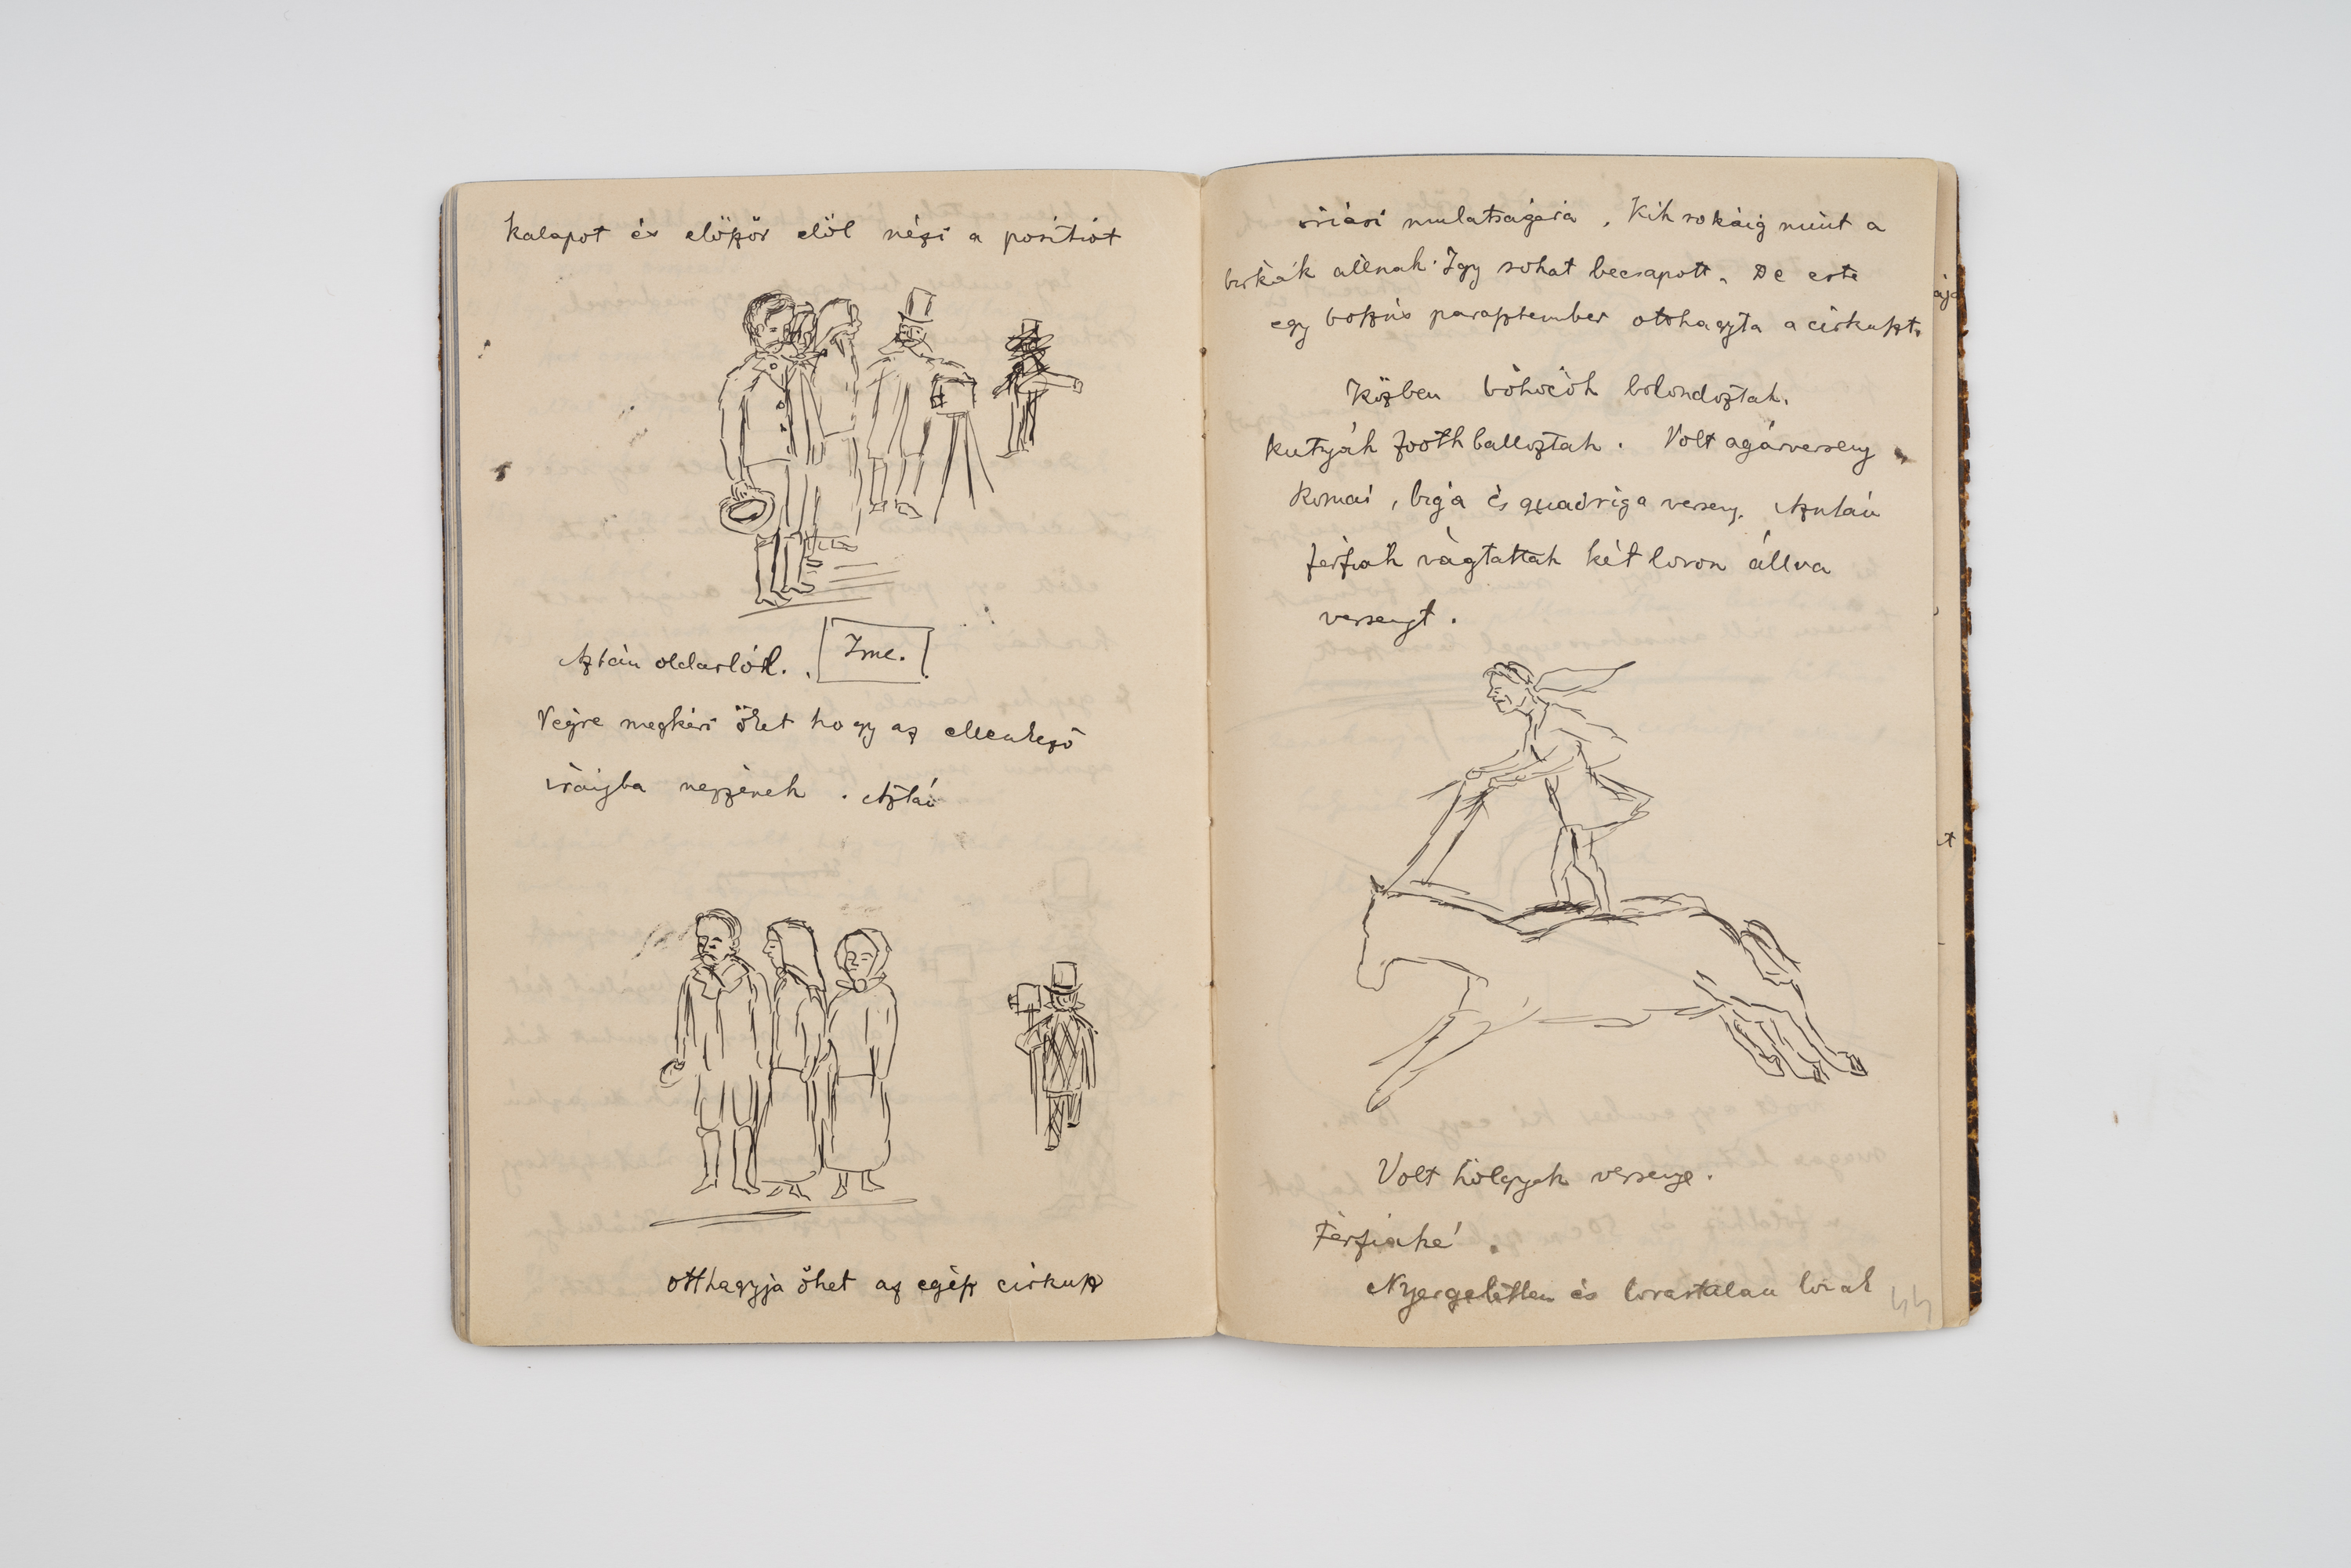 kalapot és először elöl nézi a positiót
Aztán oldarlól. Ime.
Végre megkéri őket hogy az ellenkező
iráigba nézzenek . Aztán
otthagyja őket az egész cirkusz
óriási mulatságára . Kik sokáig mint a
birkák állnak. Igy sokat becsapott. De este
egy bozzús parasztember otthagyta a cirkuszt.
Közben bohocok bolondoztak.
Kutyák foothballoztak . Volt agárverseny
Romai , biga és quadriga verseny. Azután
férfiak vágtattak két lovon állva
versenyt .
Volt hölgyek versenye .
Férfiaké .
Nyergeletlen és lovastalan lovak
44